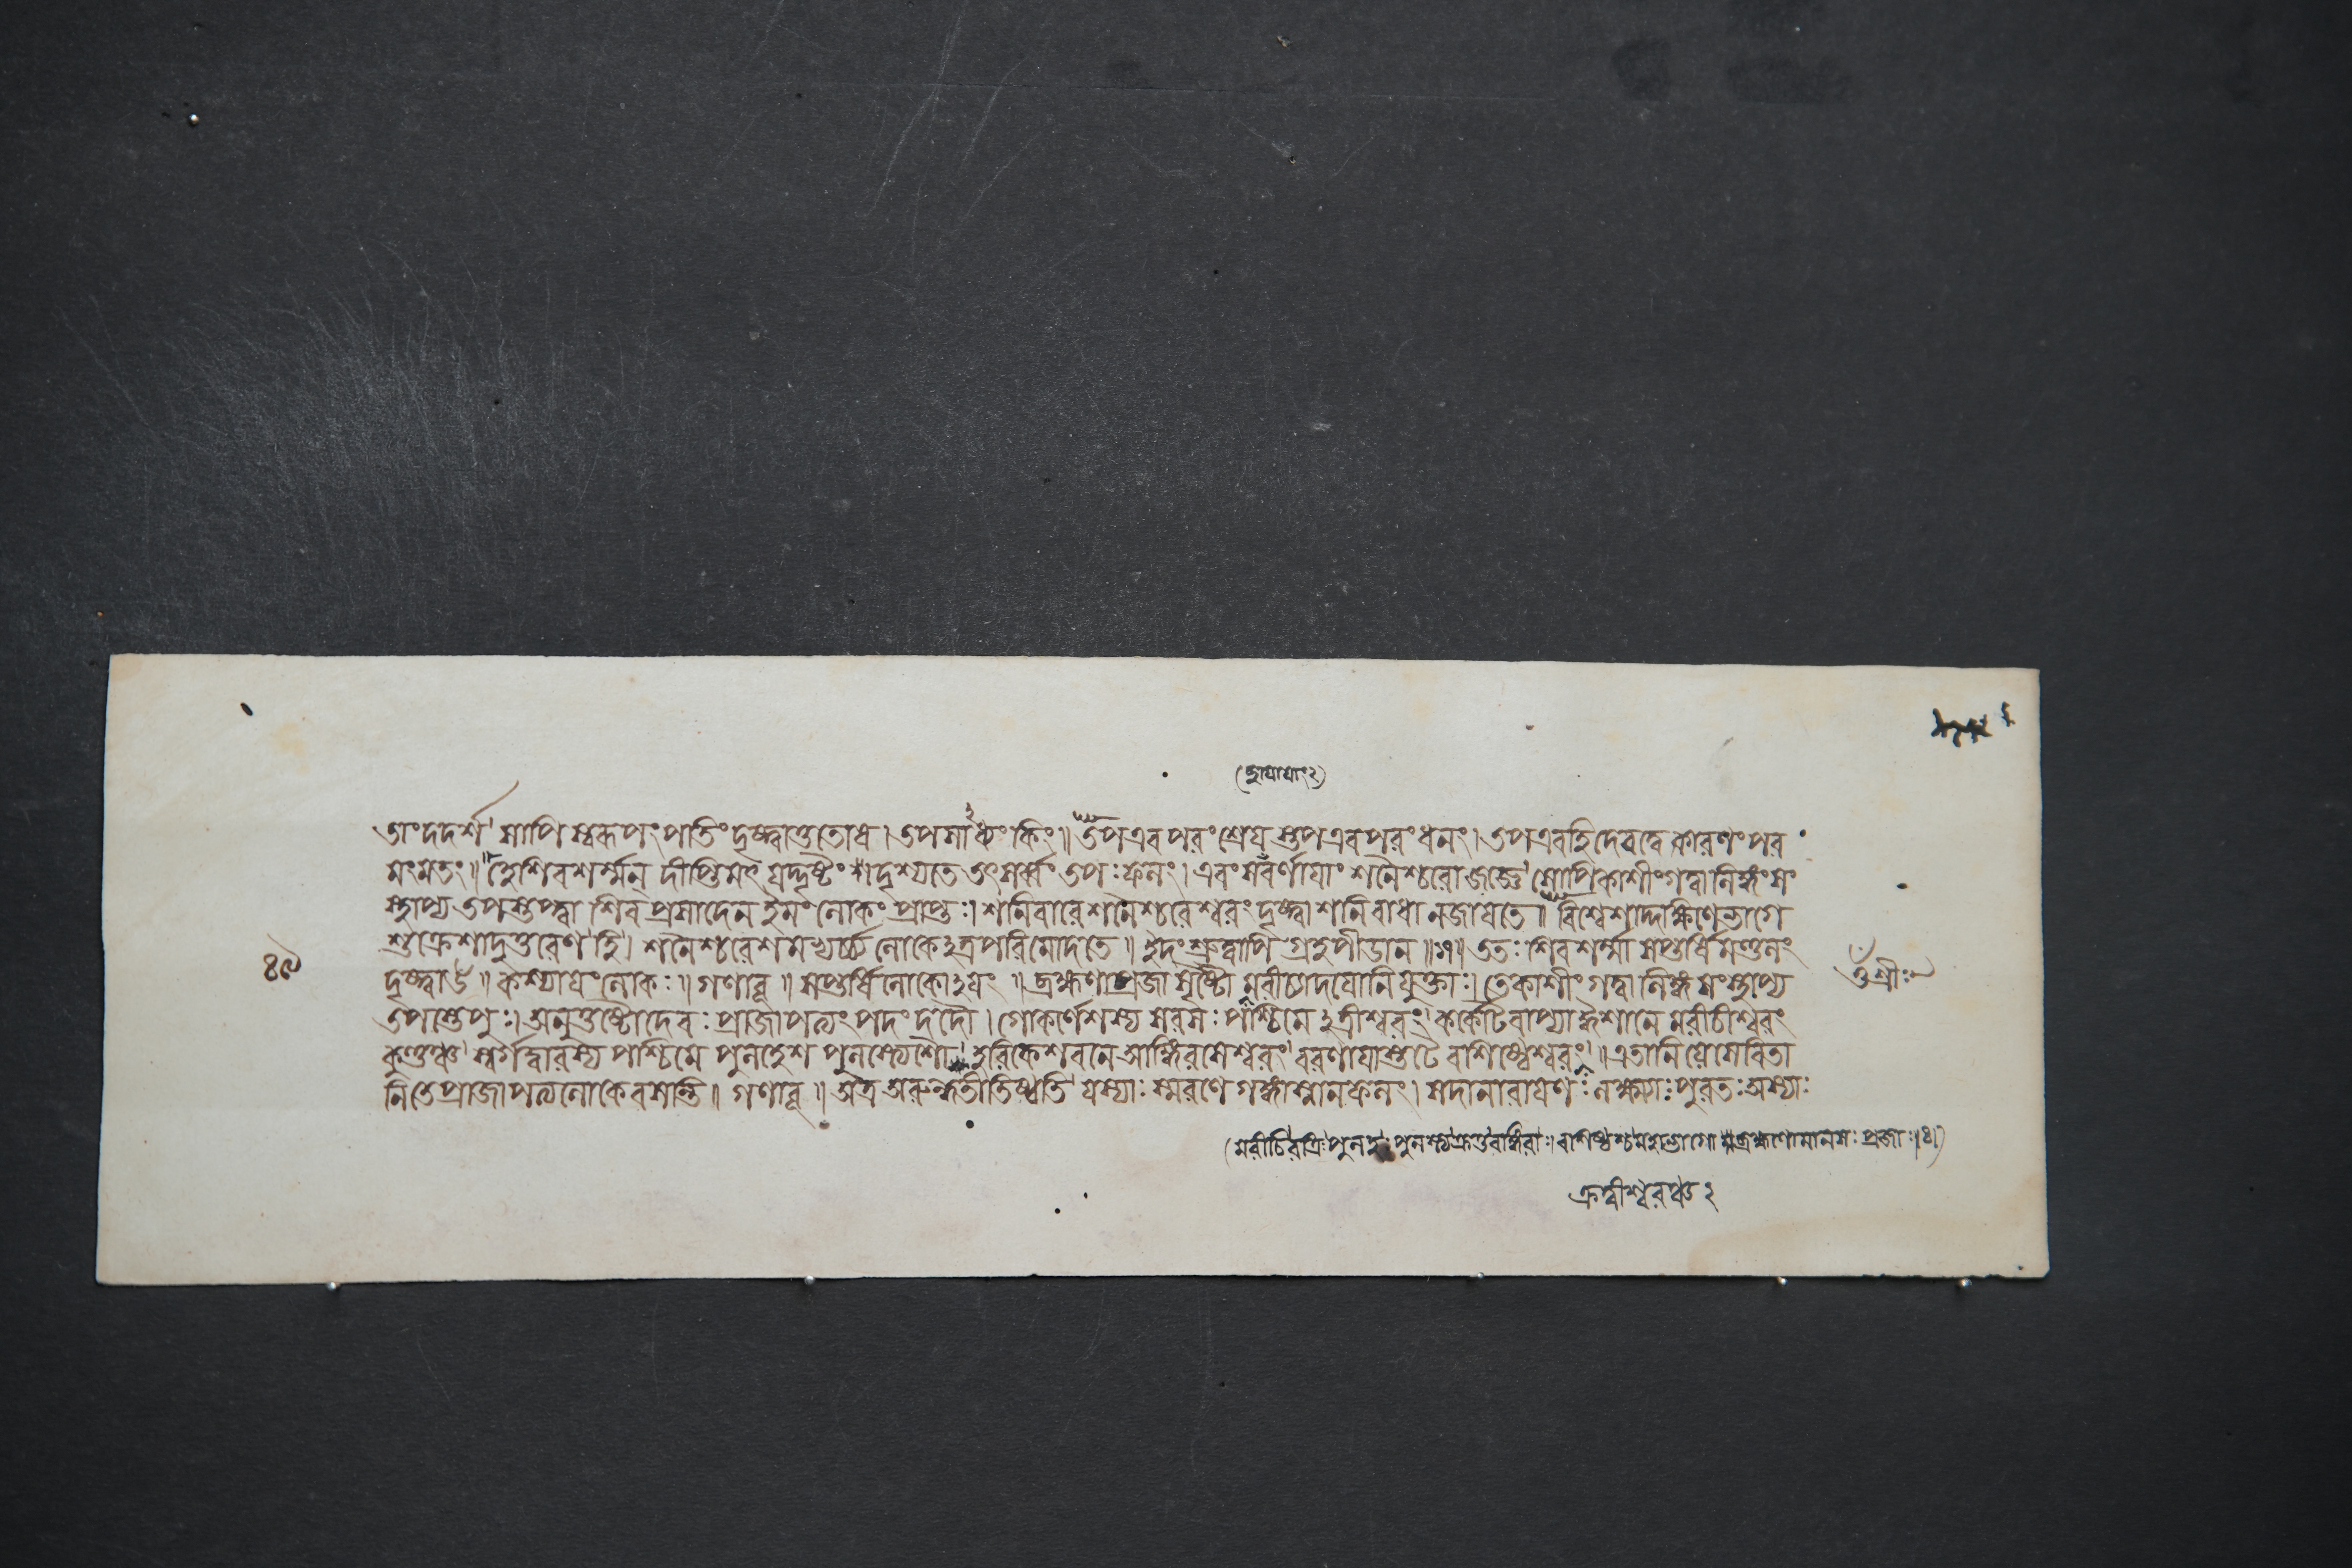 তাং দদর্শ সাপি স্বরূপং পতিং দৃষ্ট্বা তুতোষ। তপসাসাধ্যং কিং॥ তপ এব পরং শ্রেয় স্তপ এব পরং ধনং। তপ এব হি দেবত্বে কারণং পর
মং মতং॥ হে শিবশর্ম্মন্ দীপ্তিমৎ যদ্দৃষ্টং দৃশ্যতে তৎসর্ব্বং তপঃ ফলং। এবং সবর্ণায়াং শনৈশ্চরো জজ্ঞে সোপি কাশীং গত্বা লিঙ্গং সং
(ছায়ায়াং২)
স্থাপ্য তপস্তপ্ত্বা শিবপ্রসাদেন ইমং লোকং প্রাপ্তঃ। শনিবারে শনৈশ্চরেশ্বরং দৃষ্ট্বা শনিবাধা ন জায়তে॥ বিশ্বেশাদ্দক্ষিণে ভাগে
শুক্রেশাদুত্তরেণ হি। শনৈশ্চরেশমভ্যর্চ্চ্য লোকেঽত্র পরিমোদতে॥ ইদং শ্রুত্বাপি গ্রহপীডা ন॥ ততঃ শিবশর্ম্মা সপ্তর্ষিমণ্ডলং
৪৯
দৃষ্ট্বাহ॥ কস্যায়ং লোকঃ॥ গণাবূ॥ সপ্তর্ষিলোকোঽয়ং॥ ব্রহ্মণা প্রজাসৃষ্টৌ মরীচ্যাদয়ো নিযুক্তাঃ। তে কাশীং গত্বা লিঙ্গং সংস্থাপ্য
ওঁ শ্রীঃ
তপস্তেপুঃ। অনুতুষ্টো দেবঃ প্রাজাপত্যং পদং দদৌ। গোকর্ণেশস্য সরসঃ পশ্চিমে ঽত্রীশ্বরং কর্কোটবাপ্যা ঐশানে মরীচীশ্বরং
কুণ্ডঞ্চ স্বর্গদ্বারস্য পশ্চিমে পুলহেশ পুলস্ত্যেশৌ হরিকেশবনে আঙ্গিরসেশ্বরং বরণায়াস্তটে বাশিষ্ঠেশ্বরং॥ এতানি সেবিতা
নি তে প্রাজাপত্যলোকে বসন্তি॥ গণাবূ॥ অত্র অরুন্ধতী তিষ্ঠতি যস্যাঃ স্মরণে গঙ্গাস্নানফলং। সদা নারায়ণঃ লক্ষ্ম্যাঃ পুরতঃ অস্যাঃ
(মরীচিরত্রিঃ পুলহঃ পুলস্ত্যঃ ক্রতুরঙ্গিরাঃ। বাশিষ্ঠশ্চ মহাভাগো ব্রহ্মণো মানসাঃ প্রজাঃ।৪।)
ক্রত্বীশ্বরঞ্চ ২